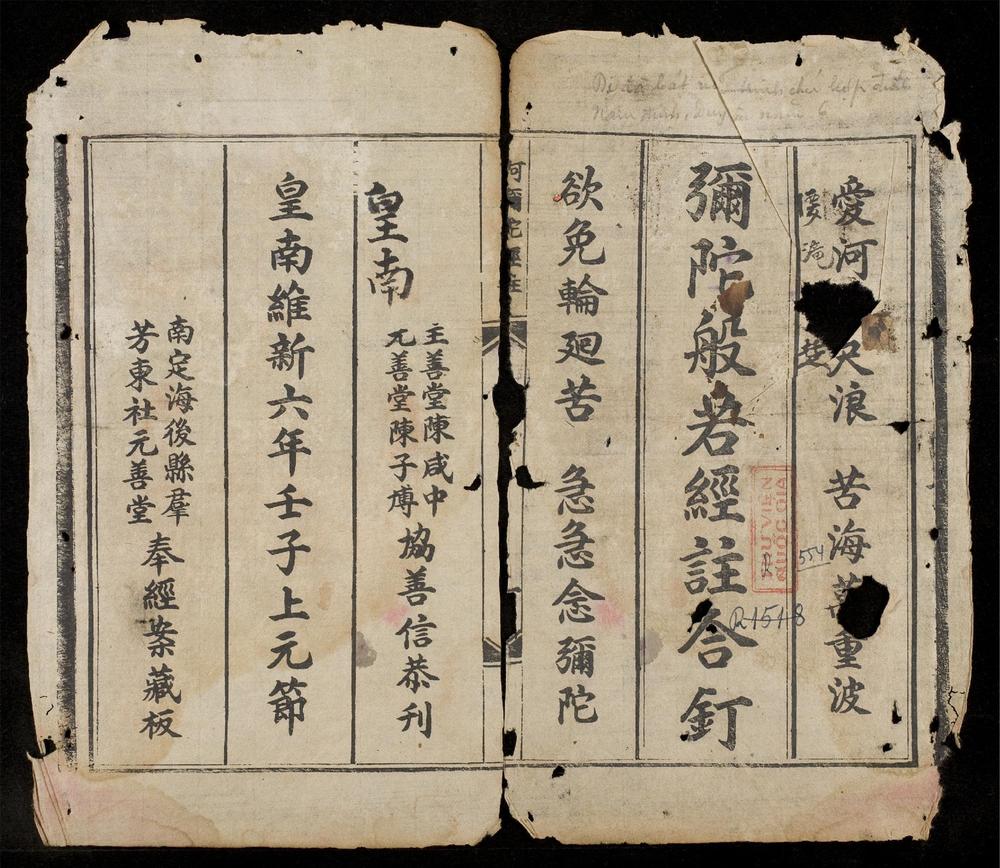 Di đà bát nhã kinh chú hợp đính
Nam định, Duy tân năm 6
愛河尺浪 苦海萬重波
彌陀般若經註合釘
THƯ VIỆN
QUỐC GIA
R
554
R.1518
欲免輪廻苦 急急念彌陀
阿彌陀經註
皇南
主善堂陳咸中
元善堂陳子博
協善信恭刊
皇南維新六年壬子上元節
南定海後縣羣
芳東社元善堂
奉經案藏板